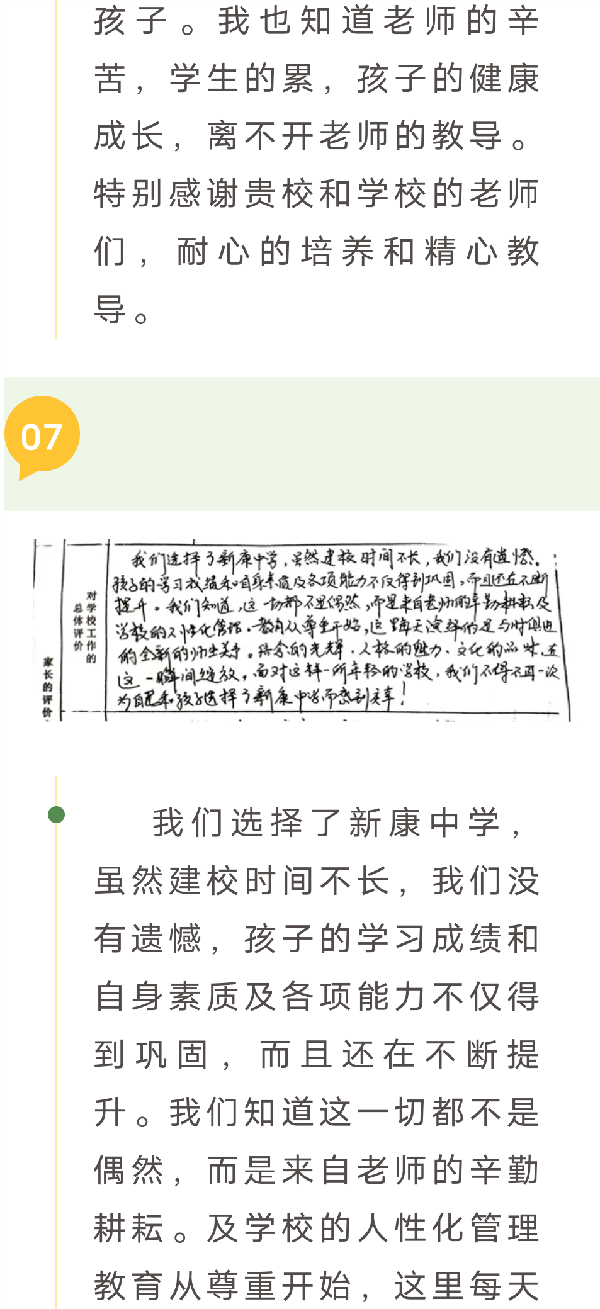 孩子。我也知道老师的辛
苦，学生的累，孩子的健康
成长，离不开老师的教导。
特别感谢贵校和学校的老师
们，耐心的培养和精心教
导。
07
对学校工作的
总体评价
家长的评价
我们选择了新康中学，虽然建校时间不长，我们没有遗憾。
孩子的学习成绩和自身素质及各项能力不仅得到巩固，而且还在不断
提升。我们知道，这一切都不是偶然，而是来自老师的辛勤耕耘及
学校的人性化管理。教育从尊重开始，这里每天演绎的是与时俱进
的全新的师生关系。综合的光辉，人格的魅力，文化的品味，在
这一瞬间绽放，面对这样一所年轻的学校，我们不得不再一次
为自己和孩子选择了新康中学而感到庆幸！
我们选择了新康中学，
虽然建校时间不长，我们没
有遗憾，孩子的学习成绩和
自身素质及各项能力不仅得
到巩固，而且还在不断提
升。我们知道这一切都不是
偶然，而是来自老师的辛勤
耕耘。及学校的人性化管理
教育从尊重开始，这里每天